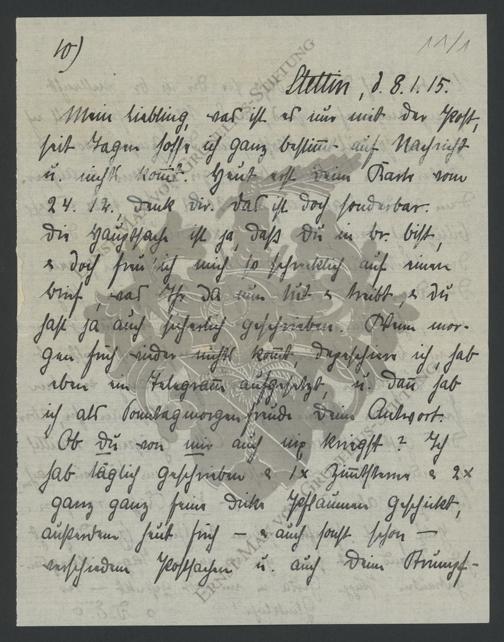 10)
11/1
Stettin, d. 8.1.15.
Mein Liebling, was ist es nur mit der Post,
seit Tagen hoffe ich ganz bestimmt auf Nachricht
u. nichts kommt. Heut erst deine Karte vom
24.12., denk dir. Das ist doch sonderbar.
Die Hauptsache ist ja, daß Du in Br. bist,
& doch freu' ich mich so schrecklich auf einen
Brief, was Ihr da nun tut & treibt & du
hast ja auch sicherlich geschrieben. Wenn mor-
gen früh wieder nichts kommt, depeschiere ich, hab
eben ein Telegramm aufgesetzt, u. dann hab
ich als Sonntagmorgenfreude Deine Antwort.
Ob du von mir auch nix kriegst? Ich
hab täglich geschrieben & 1x Zimtsterne & 2x
ganz ganz feine dicke Pflaumen geschickt,
außerdem heut früh – & auch sonst schon –
verschiedene Postsachen u. auch Deine Strumpf-
ERNST-MAYR-VON-GRELLUS-STIFTUNG